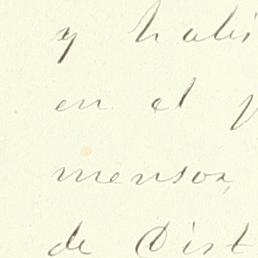 y habi
en el p
mensor,
de Dist